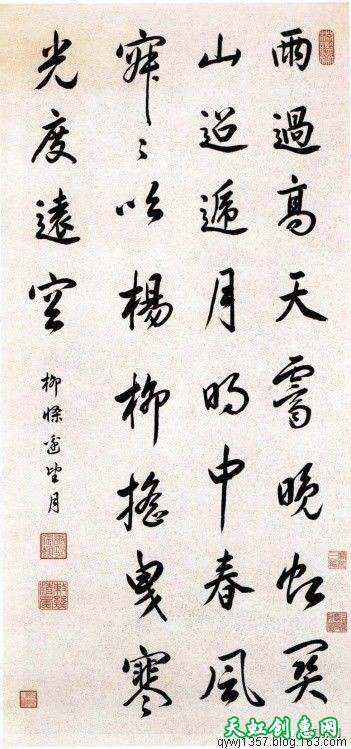 雨過高天霽晚虹關
山迢遞月明中春風
寂〻吹楊柳搖曳寒
光度遠空
柳條邊望月
天虹创意网
qywj1357.blog.163.com